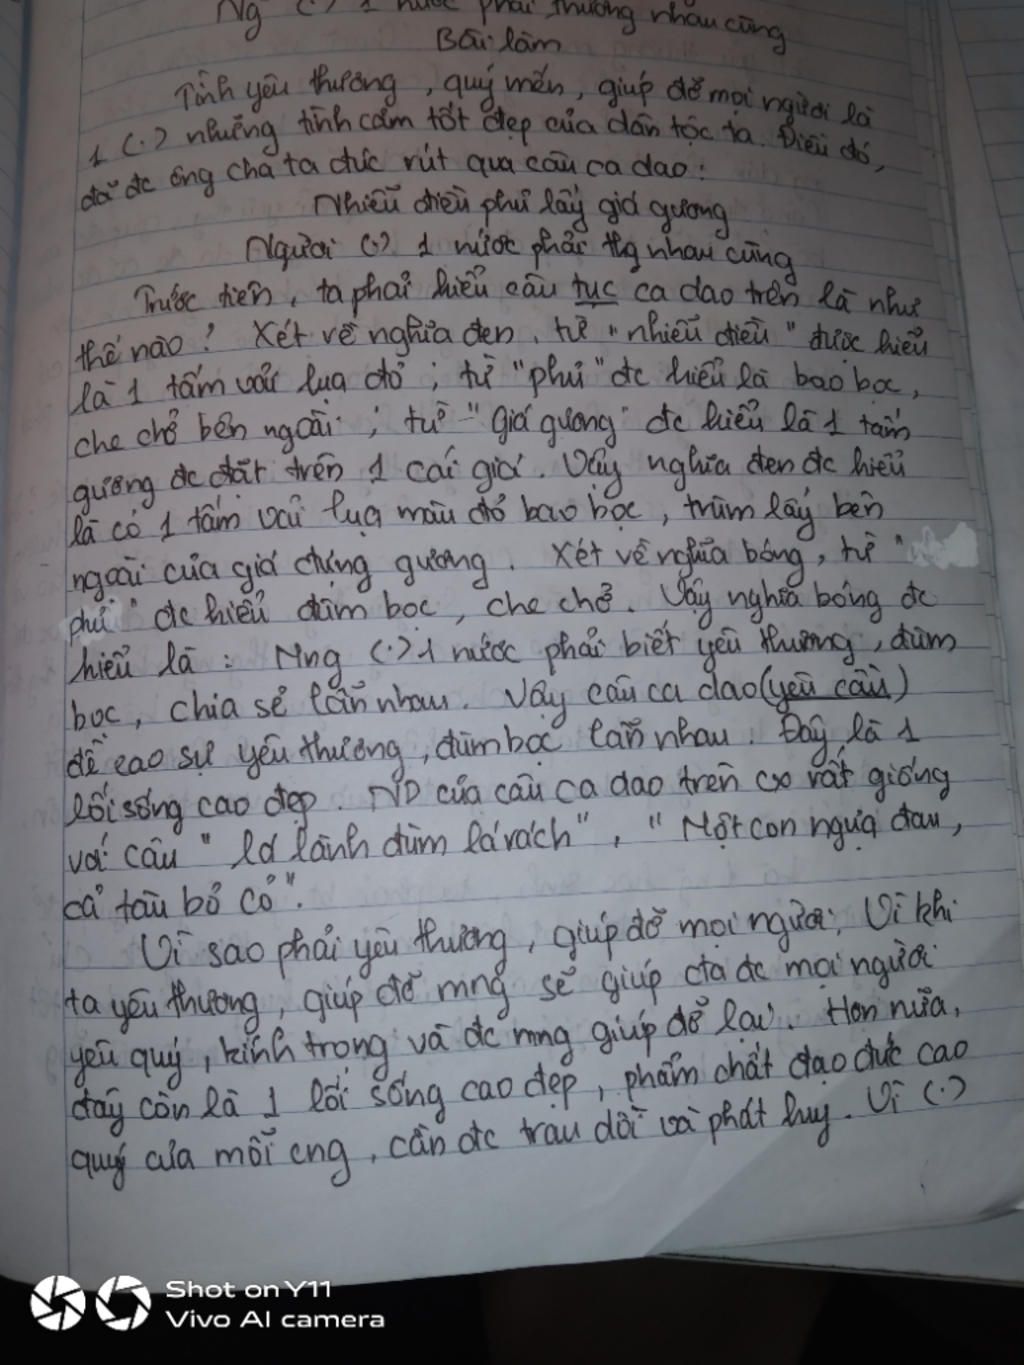 Ng (.) 1 nước phải thương nhau cùng
Bài làm
Tình yêu thương, quý mến, giúp đỡ mọi người là
1 (.) những tình cảm tốt đẹp của dân tộc ta. Điều đó,
đã đc ông cha ta đúc rút qua câu ca dao:
Nhiễu điều phủ lấy giá gương
Người (.) 1 nước phải thg nhau cùng
Trước tiên, ta phải hiểu câu tục ca dao trên là như
thế nào? Xét về nghĩa đen, từ "nhiễu điều" được hiểu
là 1 tấm vải lụa đỏ; từ "phủ" đc hiểu là bao bọc,
che chở bên ngoài; từ "giá gương" đc hiểu là 1 tấm
gương đc đặt trên 1 cái giá. Vậy nghĩa đen đc hiểu
là có 1 tấm vải lụa màu đỏ bao bọc, trùm lấy bên
ngoài của giá đựng gương. Xét về nghĩa bóng, từ "
phủ" đc hiểu đùm bọc, che chở. Vậy nghĩa bóng đc
hiểu là: Mng (.) 1 nước phải biết yêu thương, đùm
bọc, chia sẻ lẫn nhau. Vậy câu ca dao (yêu cầu)
đề cao sự yêu thương, đùm bọc lẫn nhau. Đây là 1
lối sống cao đẹp. ND của câu ca dao trên cx rất giống
với câu "lá lành đùm lá rách", "Một con ngựa đau,
cả tàu bỏ cỏ".
Vì sao phải yêu thương, giúp đỡ mọi người; Vì khi
ta yêu thương, giúp đỡ mng sẽ giúp cta đc mọi người
yêu quý, kính trọng và đc mng giúp đỡ lại. Hơn nữa,
đây còn là 1 lối sống cao đẹp, phẩm chất đạo đức cao
quý của mỗi cng, cần đc trau dồi và phát huy. Vì (.)
Shot on Y11
Vivo AI camera